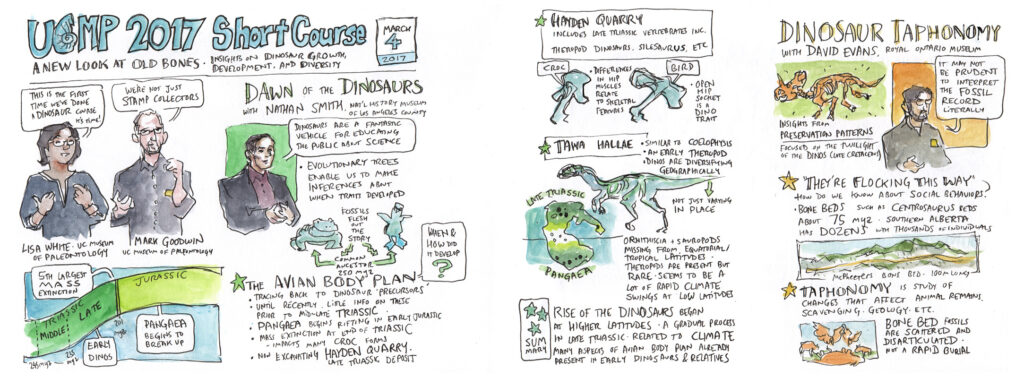 UCMP 2017 Short Course
MARCH
4
2017
A NEW LOOK AT OLD BONES · INSIGHTS ON DINOSAUR GROWTH,
DEVELOPMENT, AND DIVERSITY
THIS IS THE FIRST
TIME WE'VE DONE
A DINOSAUR COURSE
IT'S TIME!
WE'RE NOT JUST
STAMP COLLECTORS
LISA WHITE · UC MUSEUM
OF PALEONTOLOGY
MARK GOODWIN
UC MUSEUM OF PALEONTOLOGY
5TH LARGEST
MASS
EXTINCTION
JURASSIC
TRIASSIC
MIDDLE
LATE
201
MYA
EARLY
DINOS
PANGAEA
BEGINS TO
BREAK UP
DAWN OF THE DINOSAURS
WITH NATHAN SMITH, NAT'L HISTORY MUSEUM
OF LOS ANGELES COUNTY
DINOSAURS ARE A FANTASTIC
VEHICLE FOR EDUCATING
THE PUBLIC ABOUT SCIENCE
• EVOLUTIONARY TREES
ENABLE US TO MAKE
INFERENCES ABOUT
WHEN TRAITS DEVELOPED
FOSSILS
FLESH
OUT
THE
STORY
COMMON
ANCESTOR
250 MYA
WHEN &
HOW DID
IT DEVELOP
?
THE AVIAN BODY PLAN
• TRACING BACK TO DINOSAUR PRECURSORS
• UNTIL RECENTLY, LITTLE INFO ON THESE
PRIOR TO MID-LATE TRIASSIC
• PANGAEA BEGINS RIFTING IN EARLY JURASSIC
• MASS EXTINCTION AT END OF TRIASSIC
- IMPACTS MANY CROC FORMS
• NOW EXCAVATING HAYDEN QUARRY.
LATE TRIASSIC DEPOSIT
HAYDEN QUARRY
INCLUDES LATE TRIASSIC VERTEBRATES INC.
THEROPOD DINOSAURS, SILESAURUS, ETC
CROC
• DIFFERENCES
IN HIP
MUSCLES
RELATE
TO SKELETAL
FEATURES
BIRD
• OPEN
HIP
SOCKET
IS A
DINO
TRAIT
TAWA HALLAE
• SIMILAR TO COELOPHYSIS
• AN EARLY THEROPOD
• DINOS ARE DIVERSIFYING
GEOGRAPHICALLY
NOT JUST VARYING
IN PLACE
LATE TRIASSIC
PANGAEA
ORNITHISCIA & SAUROPODS
MISSING FROM EQUATORIAL/
TROPICAL LATITUDES.
THEROPODS ARE PRESENT BUT
RARE. SEEMS TO BE A
LOT OF RAPID CLIMATE
SWINGS AT LOW LATITUDES
SUM
MARY
RISE OF THE DINOSAURS BEGAN
AT HIGHER LATITUDES · A GRADUAL PROCESS
IN LATE TRIASSIC · RELATED TO CLIMATE
MANY ASPECTS OF AVIAN BODY PLAN ALREADY
PRESENT IN EARLY DINOSAURS & RELATIVES
DINOSAUR TAPHONOMY
WITH DAVID EVANS, ROYAL ONTARIO MUSEUM
IT MAY NOT
BE PRUDENT
TO INTERPRET
THE FOSSIL
RECORD
LITERALLY
INSIGHTS FROM
PRESERVATION PATTERNS
FOCUSED ON THE TWILIGHT
OF THE DINOS (LATE CRETACEOUS)
"THEY'RE FLOCKING THIS WAY"
HOW DO WE KNOW ABOUT SOCIAL BEHAVIORS?
• BONE BEDS SUCH AS CENTROSAURUS BEDS
ABOUT 75 MYA. SOUTHERN ALBERTA
HAS DOZENS WITH THOUSANDS OF INDIVIDUALS
BONE BED. 100M LONG
TAPHONOMY IS STUDY OF
CHANGES THAT AFFECT ANIMAL REMAINS.
SCAVENGING. GEOLOGY. ETC.
BONE BED FOSSILS
ARE SCATTERED AND
DISARTICULATED.
NOT A RAPID BURIAL